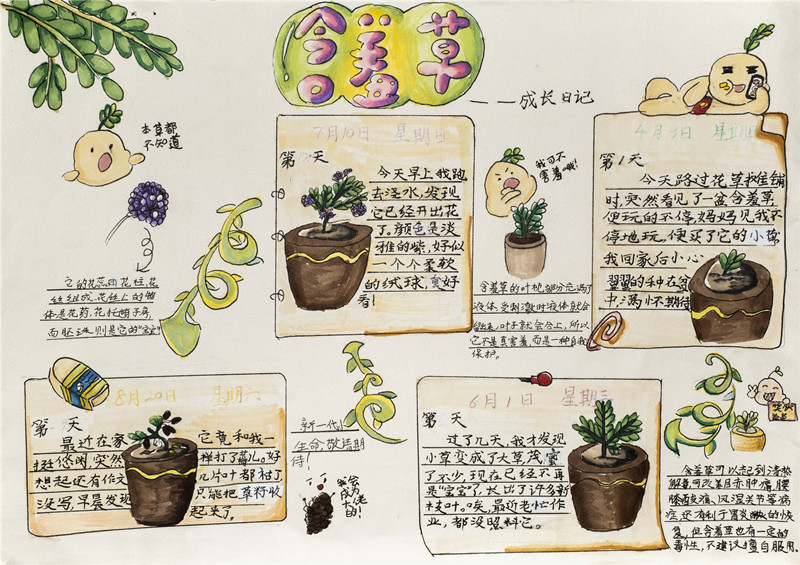 含羞草
——成长日记
本草都
不知道
7月10日 星期日
第 天
今天早上我跑
去浇水,发现
它已经开出花
了。颜色是淡
雅的紫,好似
一个个柔软
的绒球,真好
看!
我可不
害羞哦!
含羞草的叶枕部分充满了
液体,受刺激时液体就会
叶子就会合上,所以
它不是真害羞,而是一种自我
保护。
4月3日 星期日
第1天
今天路过花草摊铺
时,突然看见了一盆含羞草
便玩的不停,妈妈见我不
停地玩,便买了它的小苗
我回家后小心
翼翼的种在盆
中,满怀期待
它的花蕊由花柱,花
丝组成,花丝上的
体是花药,花托
而胚珠则是它的"宝宝"
8月20日 星期六
第 天
最近在家
挺悠闲,突然
想起还有作文
没写,早晨发现
它竟和我一
样打了蔫儿。好
几片叶都枯了,
只能把草籽收
起来了。
新一代小
生命,敬请期
待!
我会
成为
大佬
的!
6月1日 星期三
第 天
过了几天,我才发现
小草变成了大草,茂密
了不少,现在已经不再
是"宝宝"了,长出了许多新
枝叶。唉,最近老忙作
业,都没照料它。
含羞草可以起到清热
解毒,可改善目赤肿痛,腰
膝酸痛、风湿关节等病
症,还有利于胃炎的恢
复,但含羞草也有一定的
毒性,不建议擅自服用。